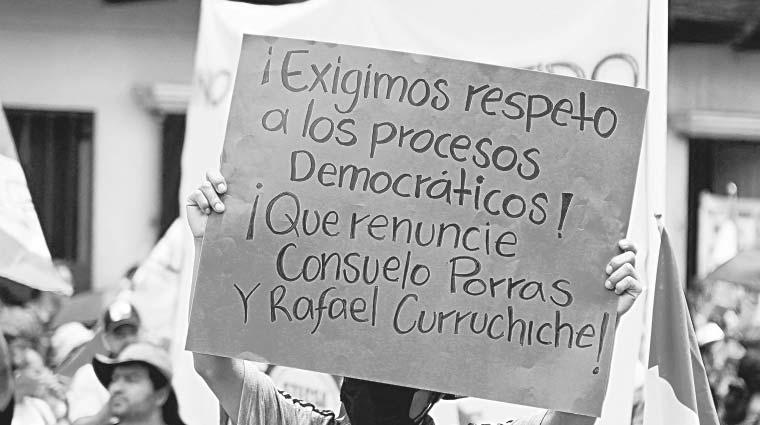 ¡Exigimos respeto
a los procesos
Democráticos!
¡Que renuncie
Consuelo Porras
Y Rafael Curruchiche!